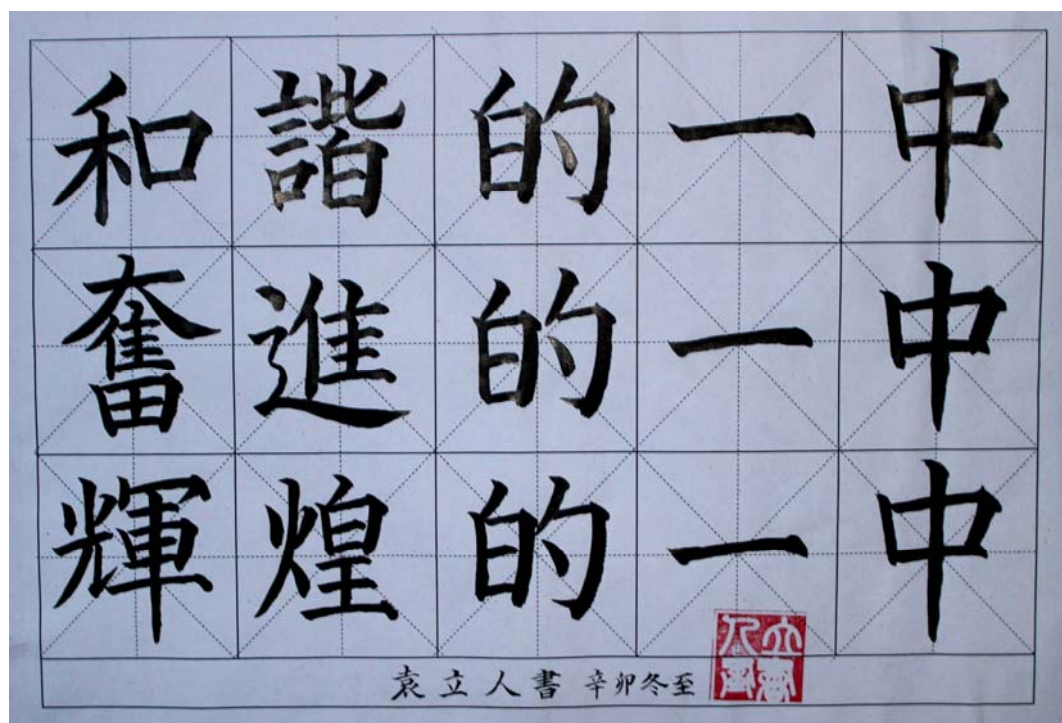 和諧的一中
奮進的一中
輝煌的一中
袁立人書 辛卯冬至